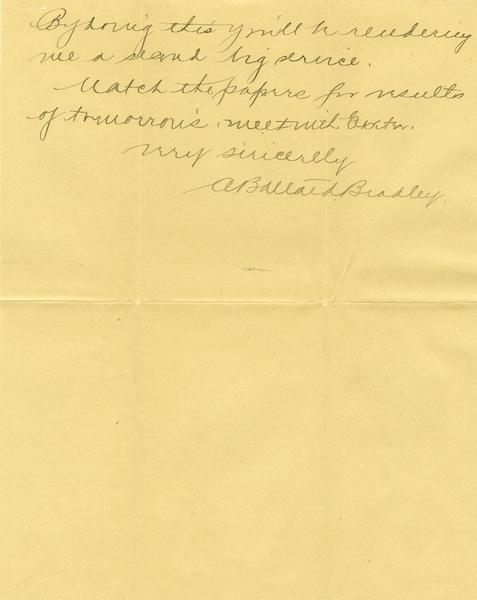 By doing this you'll be rendering
me a second big service.
Watch the papers for results
of tomorrow's meet with Exeter.
Very sincerely
A Ballard Bradley.